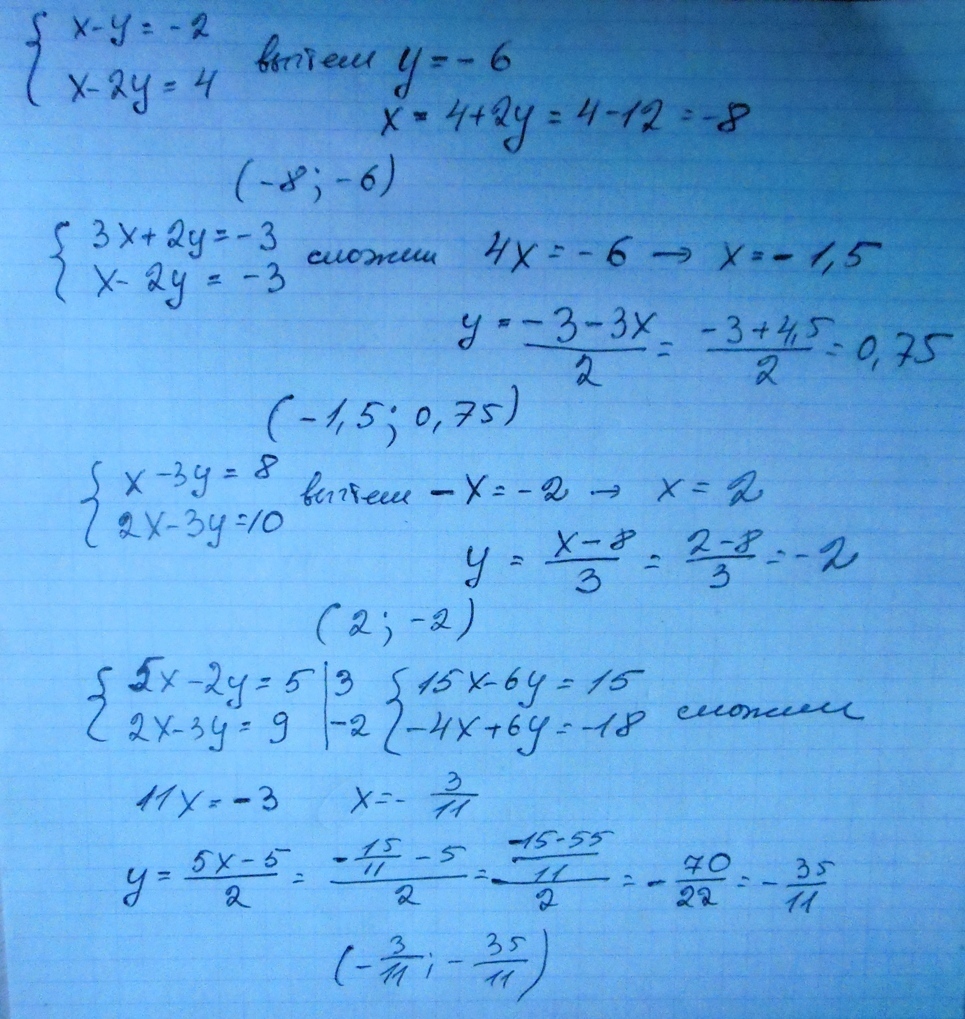 { x-y = -2
x-2y = 4 вычтем y = -6
x = 4+2y = 4-12 = -8
(-8; -6)
{ 3x+2y = -3
x-2y = -3 сложим 4x = -6 → x = -1,5
y = (-3-3x)/2 = (-3+4,5)/2 = 0,75
(-1,5; 0,75)
{ x-3y = 8
2x-3y = 10 вычтем -x = -2 → x = 2
y = (x-8)/3 = (2-8)/3 = -2
(2; -2)
{ 5x-2y = 5 | 3 { 15x-6y = 15
2x-3y = 9 | -2 -4x+6y = -18 сложим
11x = -3 x = - 3/11
y = (5x-5)/2 = (-15/11 - 5)/2 = ((-15-55)/11)/2 = - 70/22 = - 35/11
(- 3/11; - 35/11)